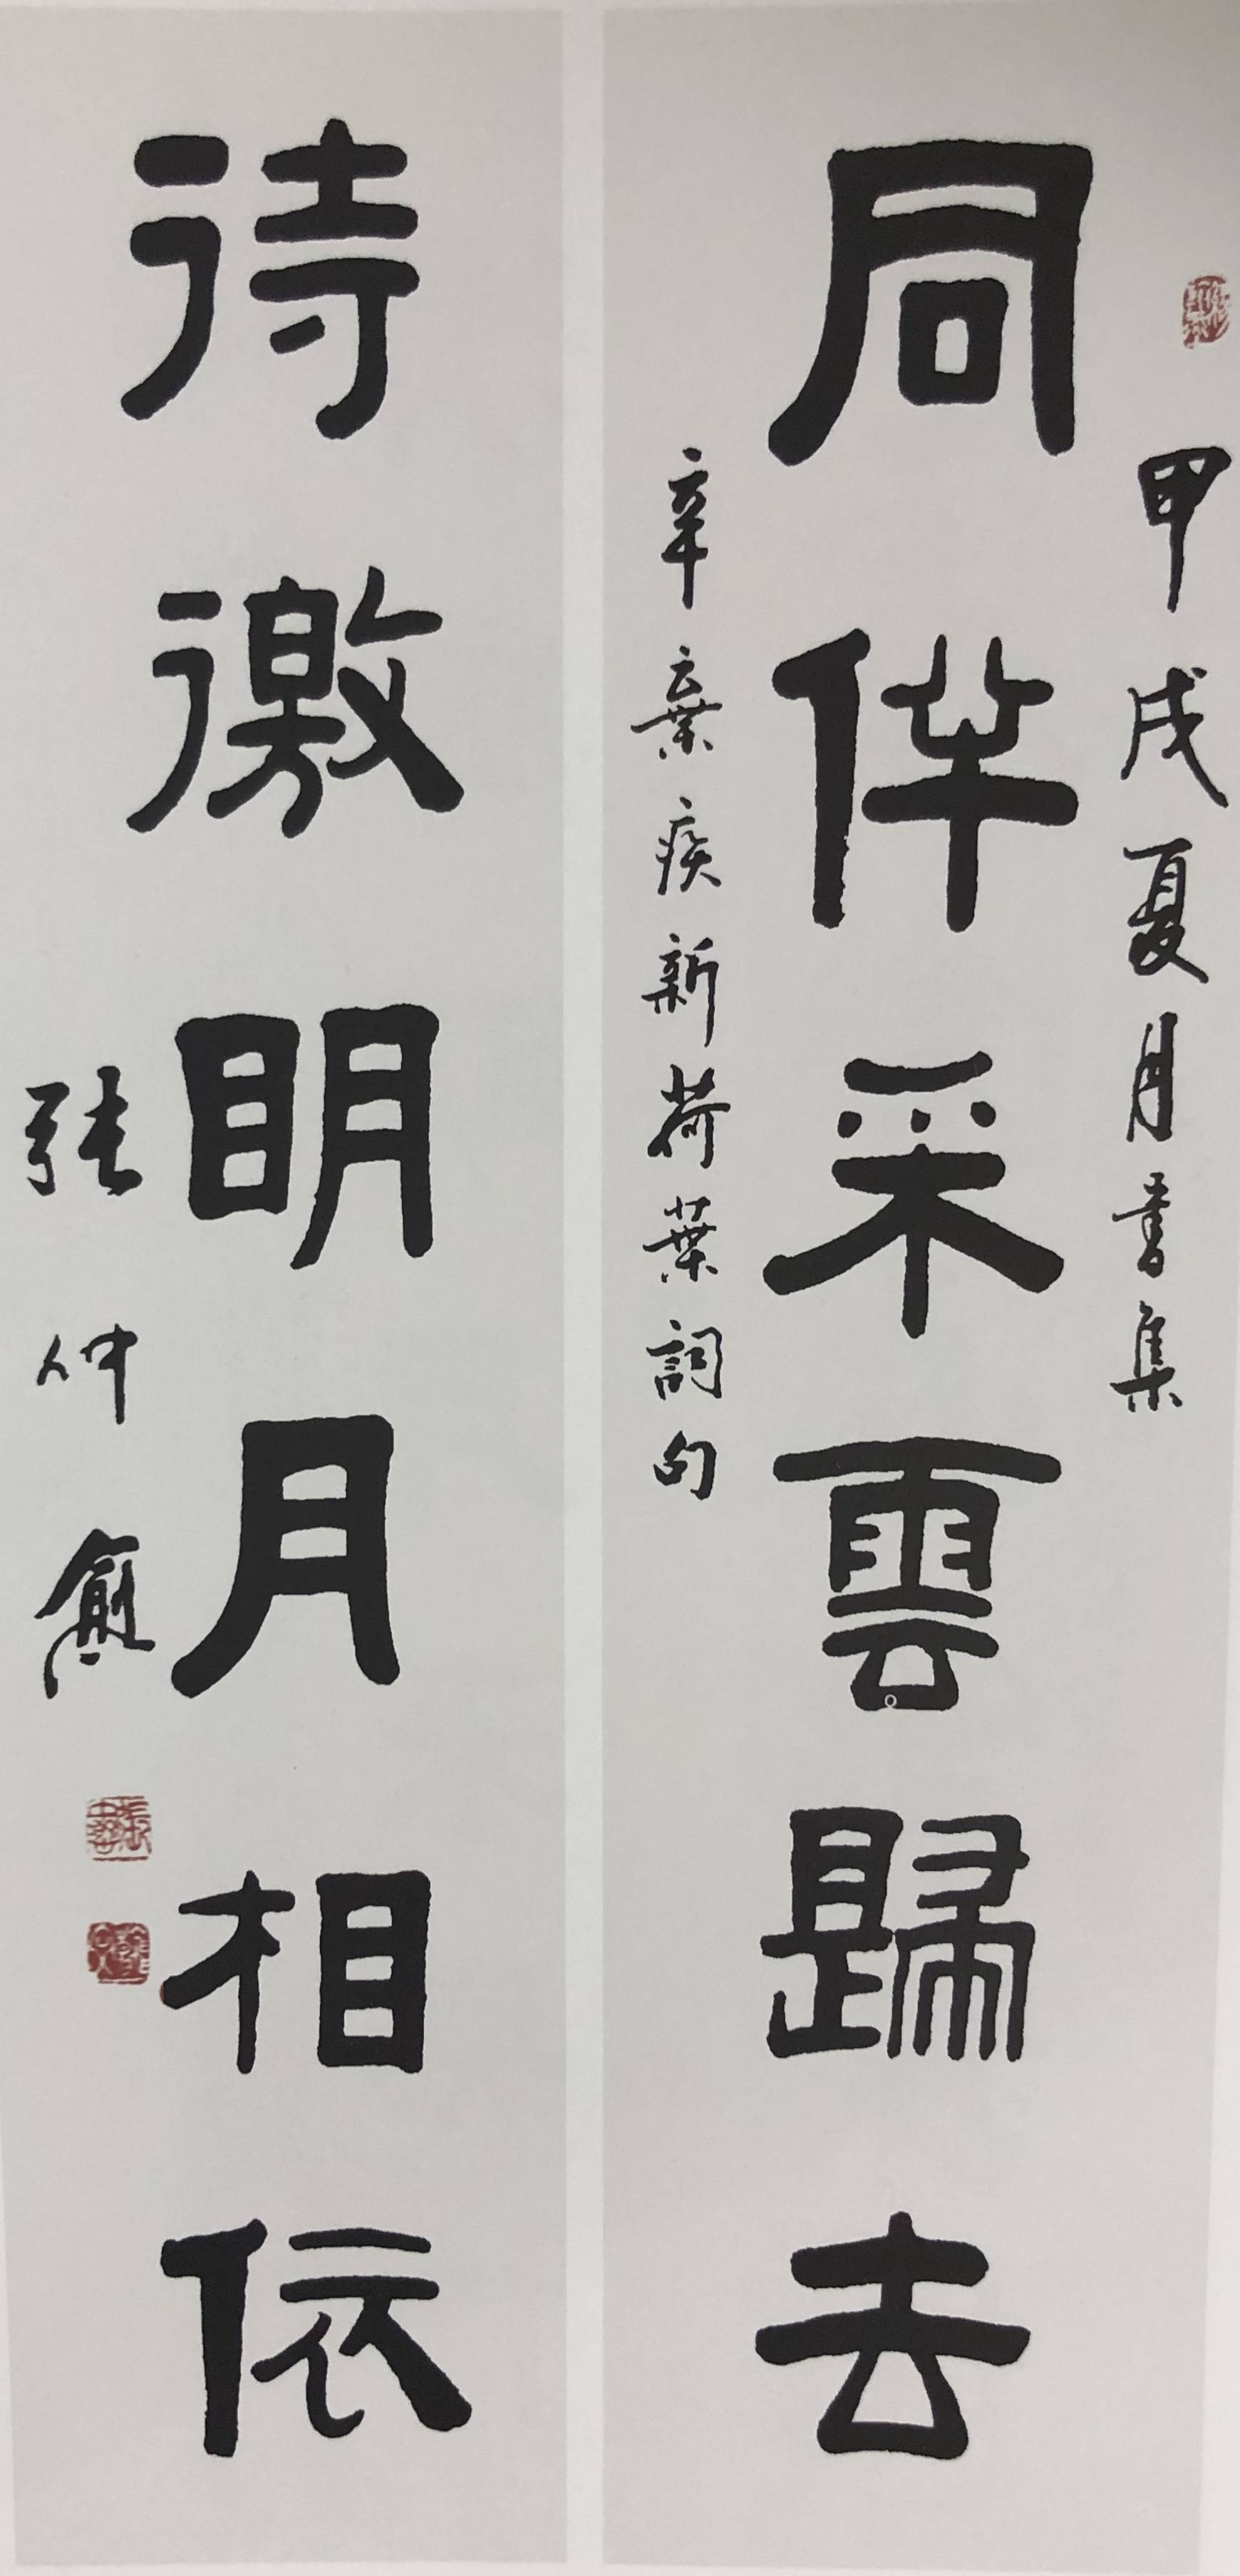 甲戌夏月書集
同伴采雲歸去
辛棄疾新荷葉詞句
待邀明月相依
張仲愈